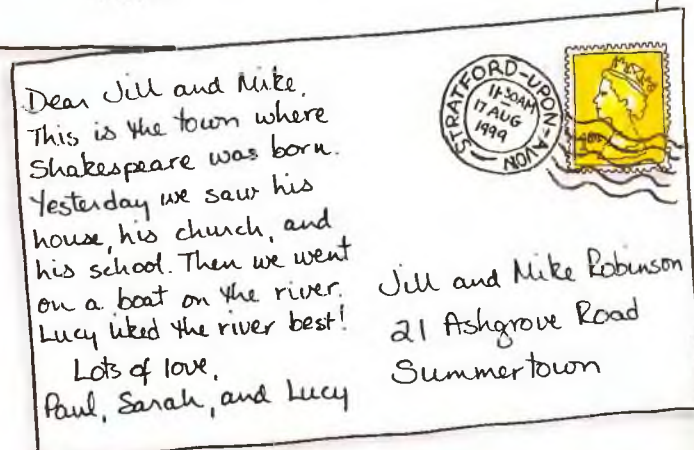 Dear Jill and Mike,
This is the town where
Shakespeare was born.
Yesterday we saw his
house, his church, and
his school. Then we went
on a boat on the river.
Lucy liked the river best!
Lots of love,
Paul, Sarah, and Lucy
STRATFORD-UPON-AVON
11·30AM
17 AUG
1999
Jill and Mike Robinson
21 Ashgrove Road
Summertown